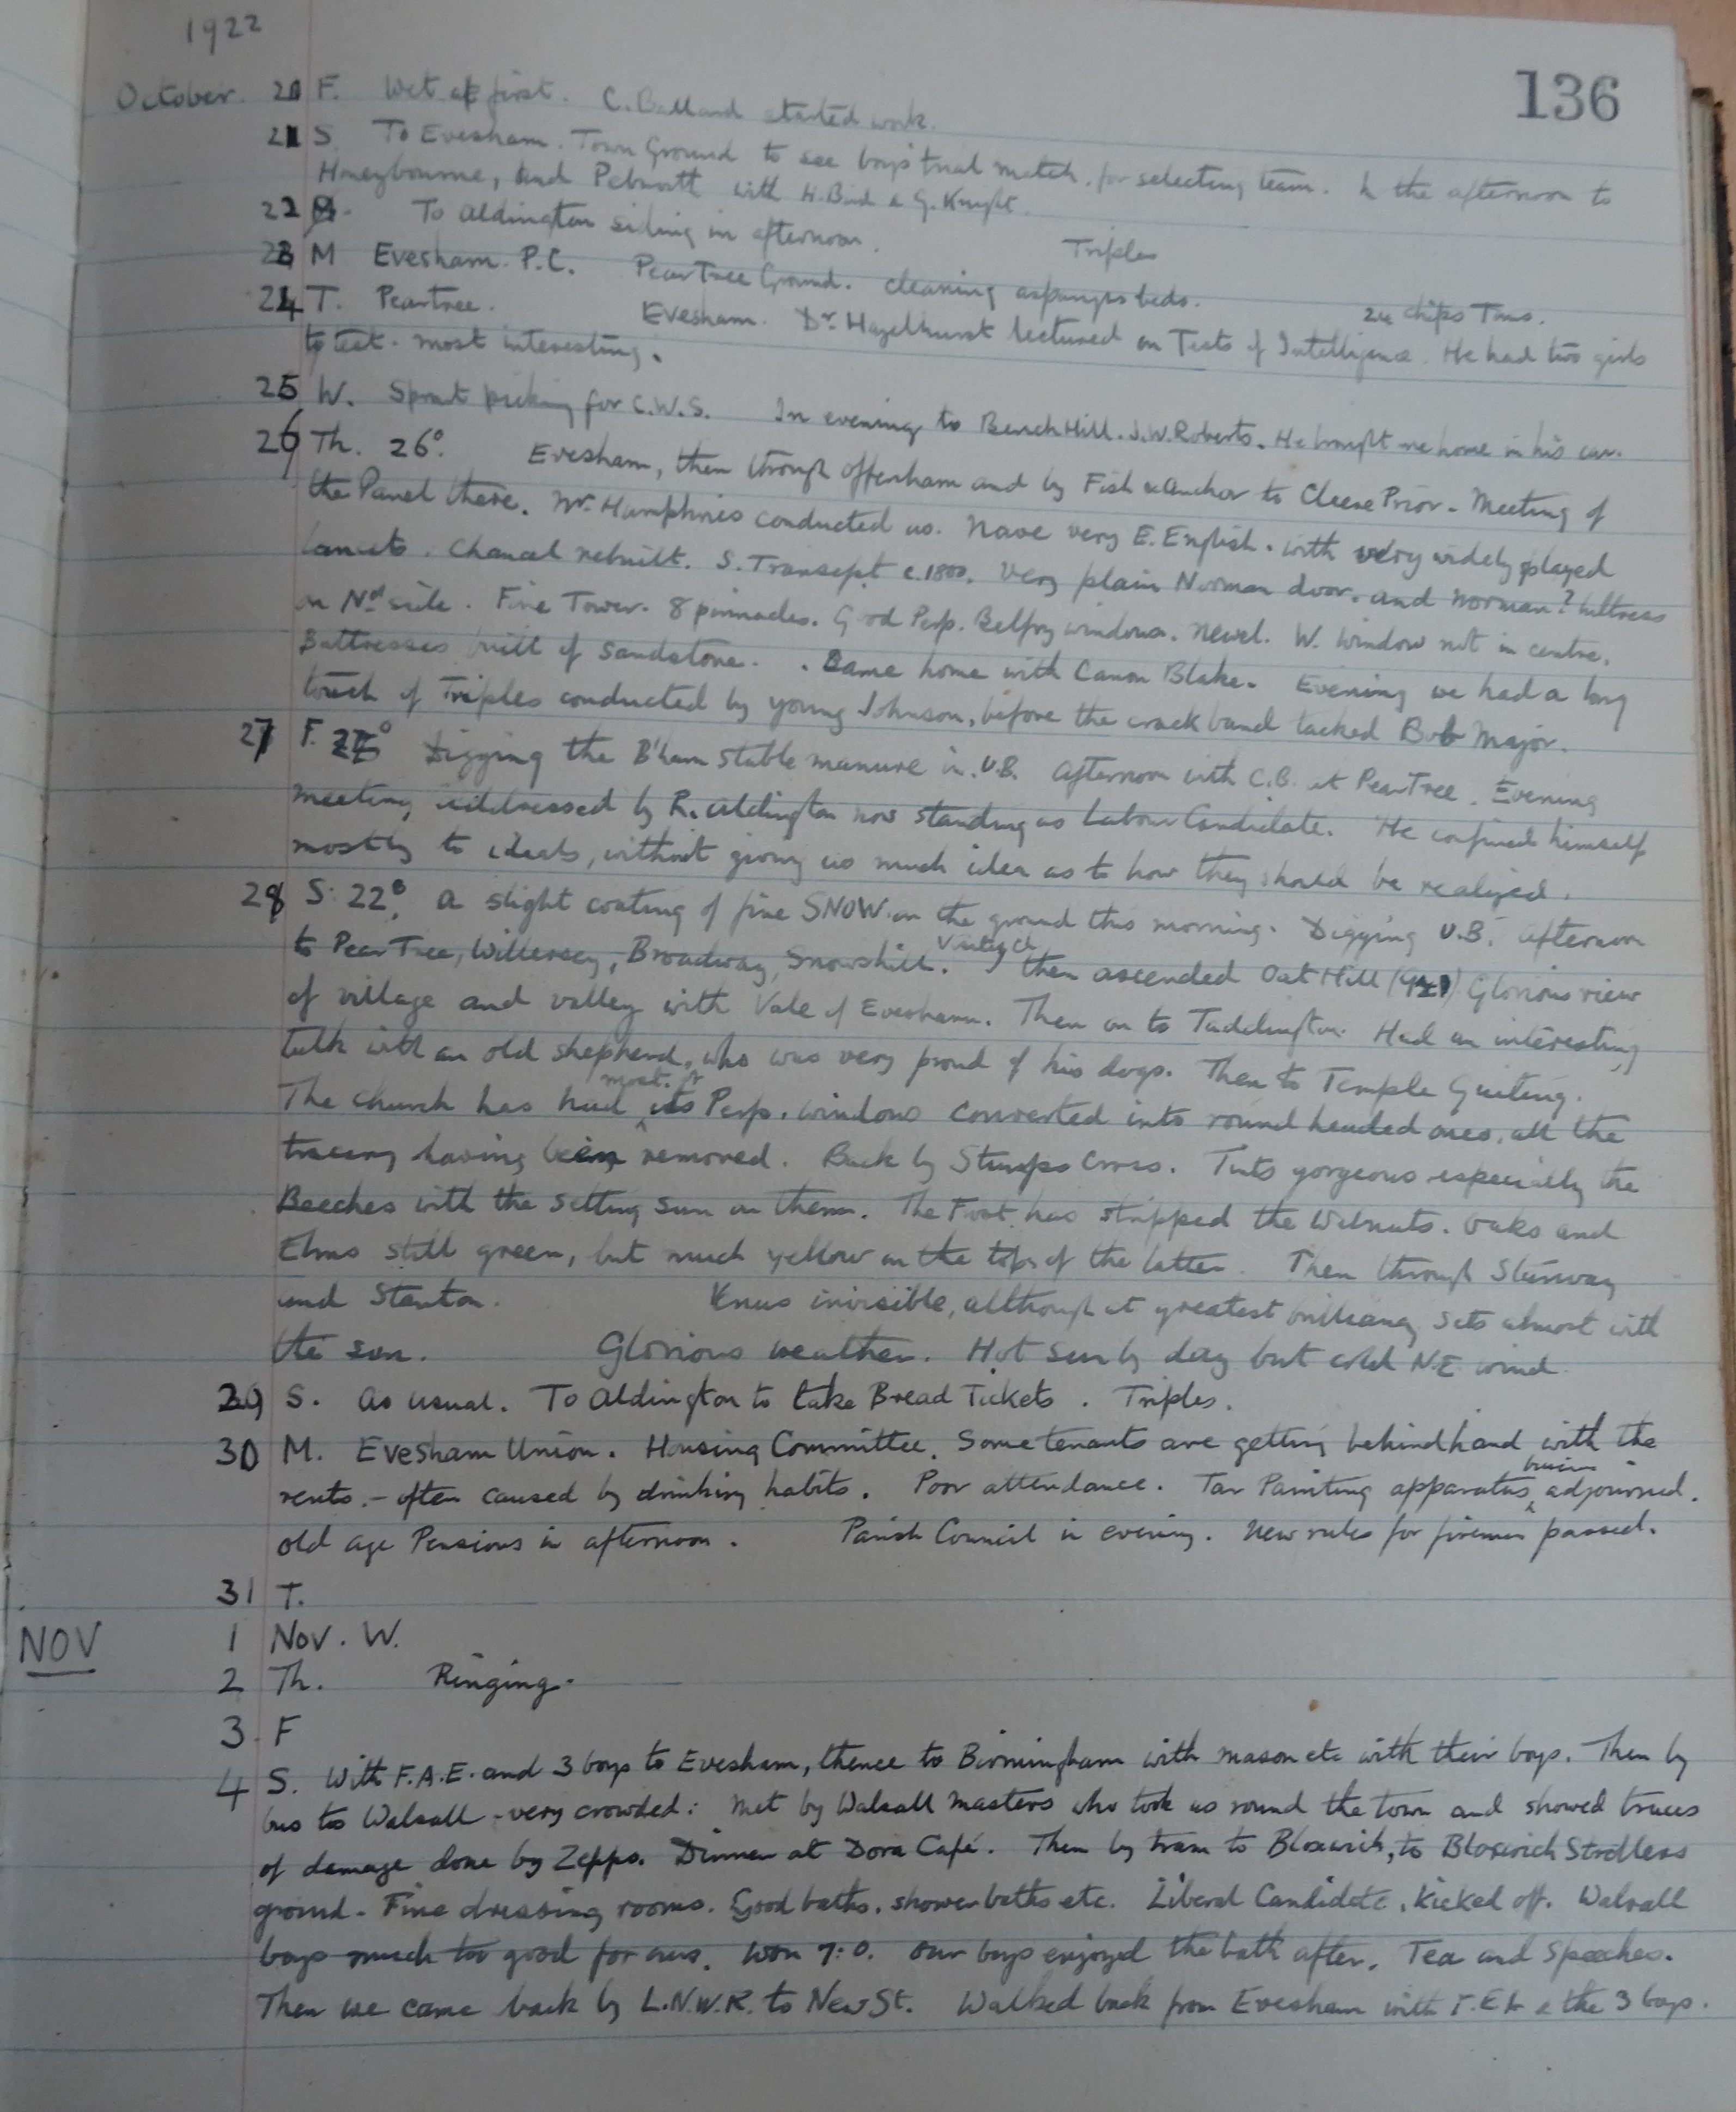 1922
136
October. 20 F. Wet at first. C. Ballard started work.
21 S. To Evesham. Town Ground to see boys' trial match. for selecting team. In the afternoon to
Honeybourne, and Pebworth with H. Bird & G. Knight.
22 S. To Aldington siding in afternoon.
Triples
23 M Evesham. P.C. Pear Tree Ground. cleaning asparagus beds.
24 chips Toms.
24 T. Peartree. Evesham. Dr. Hazelhurst lectured on Tests of Intelligence. He had two girls
to test. most interesting.
25 W. Sprout picking for C.W.S. In evening to Bench Hill. J.W. Roberts. He brought me home in his car.
26 Th. 26°. Evesham, then through Offenham and by Fish & Anchor to Cleeve Prior. Meeting of
the Panel there. Mr. Humphries conducted us. Nave very E. English. with very widely splayed
lancets. Chancel rebuilt. S. Transept c.1800. Very plain Norman door. and Norman? buttress
on Nth side. Fine Tower. 8 pinnacles. Good Perp. Belfry windows. Newel. W. Window not in centre.
Buttresses built of sandstone. Came home with Canon Blake. Evening we had a long
touch of Triples conducted by young Johnson, before the crack band tacked Bob Major.
27 F. 27° Digging the B'ham stable manure in. U.B. Afternoon with C.B. at PearTree. Evening
meeting, addressed by R. Aldington now standing as Labour Candidate. He confined himself
mostly to ideals, without giving us much idea as to how they should be realized.
28 S. 22°. A slight coating of fine SNOW on the ground this morning. Digging U.B. Afternoon
to Pear Tree, Willersey, Broadway, Snowshill. Visited ch then ascended Oat Hill Glorious view
of village and valley with Vale of Evesham. Then on to Taddington. Had an interesting
talk with an old shepherd, who was very proud of his dogs. Then to Temple Guiting.
The church has had most of its Perp. windows converted into round headed ones, all the
tracery having been removed. Back by Stumps Cross. Tints gorgeous especially the
Beeches with the setting sun on them. The Frost has stripped the Walnuts. Oaks and
Elms still green, but much yellow on the tops of the latter. Then through Stanway
and Stanton. Venus invisible, although at greatest brilliancy, sets almost with
the sun. Glorious weather. Hot sun by day but cold N.E wind.
29 S. As usual. To Aldington to take Bread Tickets. Triples.
30 M. Evesham Union. Housing Committee. Some tenants are getting behindhand with the
rents. - often caused by drinking habits. Poor attendance. Tar Painting apparatus adjourned.
old age Pensions in afternoon. Parish Council in evening. New rules for firemen passed.
31 T.
NOV 1 Nov. W.
2 Th. Ringing.
3. F
4 S. With F.A.E. and 3 boys to Evesham, thence to Birmingham with Mason etc with their boys. Then by
bus to Walsall - very crowded: Met by Walsall masters who took us round the town and showed traces
of damage done by Zepps. Dinner at Dora Café. Then by tram to Bloxwich, to Bloxwich Strollers
ground. Fine dressing rooms. Good baths, shower baths etc. Liberal Candidate, kicked off. Walsall
boys much too good for ours. Won 7:0. Our boys enjoyed the bath after. Tea and Speeches.
Then we came back by L.N.W.R. to New St. Walked back from Evesham with & the 3 boys.